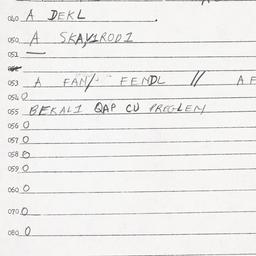 040 A DEKL
050 A SKAV1ROD1
051
053 A FAN/ FENDL // A F
054 0
055 BEKAL1 QAP CU PREGLEM
056 0
057 0
058 0
059 0
060 0
070 0
080 0